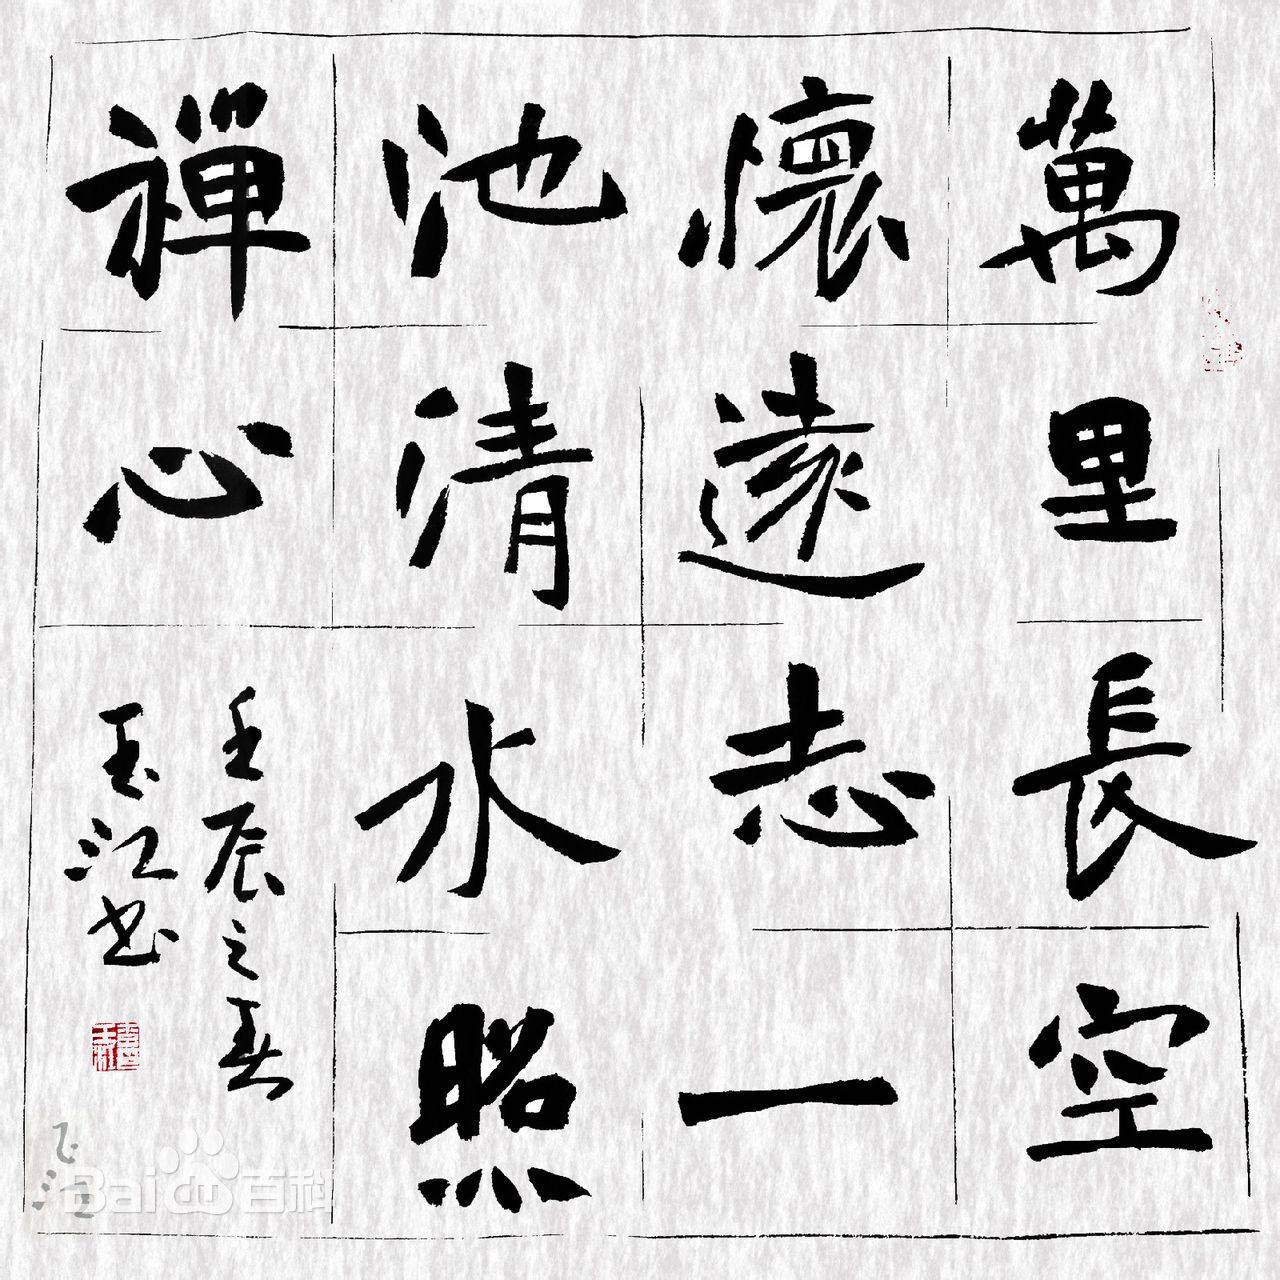 萬里長空
懷遠志一
池清水照
禪心
壬辰之春
玉江書
Baidu百科